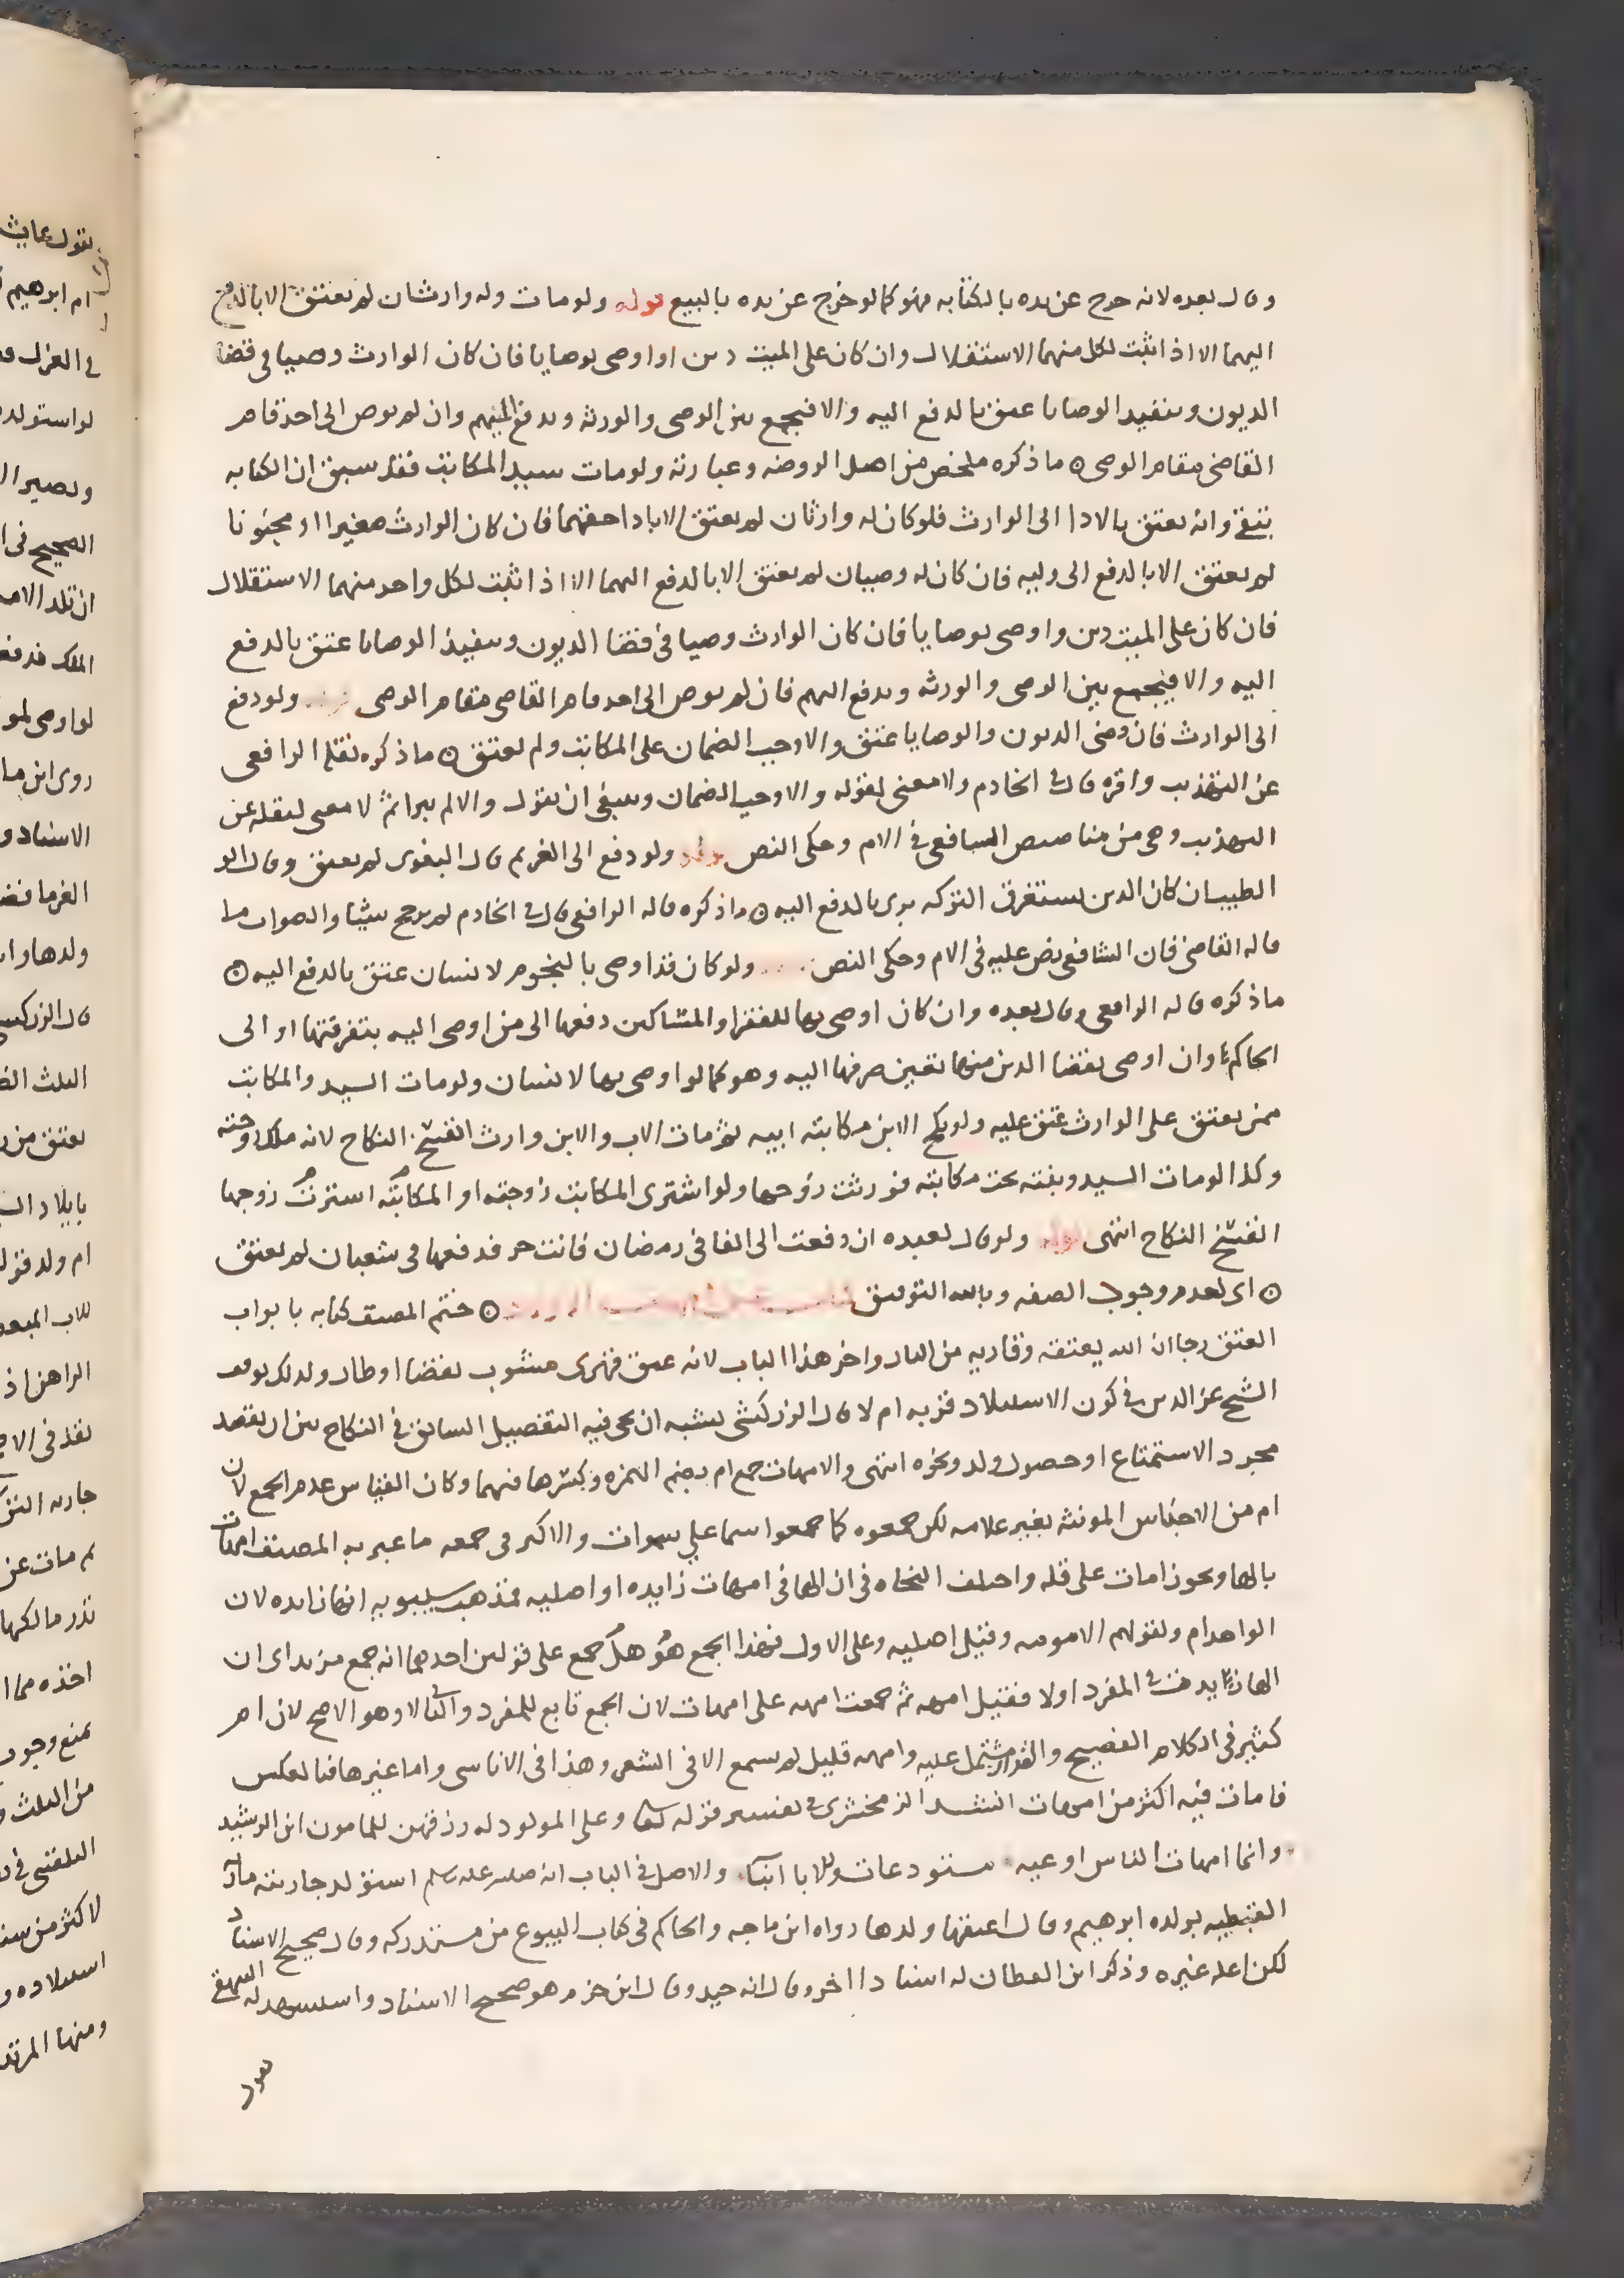 وقال بعده لانه خرج عن يده بالكتابه فهو كما لو خرج عن يده بالبيع قوله ولو مات وله وارثان لم يعتق الا بالدفع
اليهما الا اذا ثبت لكل منهما الاستقلال وان كان على الميت دين او اوصى بوصايا فان كان الوارث وصيا في قضا
الديون وتنفيد الوصايا عتق بالدفع اليه والا فيجمع بين الوصى والورثه ويدفع اليهم وان لم يوص الى احد قام
القاضى مقام الوصى ه ما ذكره ملخص من اصل الروضه وعبارته ولو مات سيد المكاتب فقد سبق ان الكتابه
تبقى وانه يعتق بالادا الى الوارث فلو كان له وارثان لم يعتق الا باداء حقهما فان كان الوارث صغيرا او مجنونا
لم يعتق الا بالدفع الى وليه فان كان له وصيان لم يعتق الا بالدفع اليهما الا اذا ثبت لكل واحد منهما الاستقلال
فان كان على الميت دين واوصى بوصايا فان كان الوارث وصيا في قضا الديون وتنفيذ الوصايا عتق بالدفع
اليه والا فيجمع بين الوصى والورثه ويدفع اليهم فان لم يوص الى احد قام القاضى مقام الوصى ولو دفع
الى الوارث فان وفى الديون والوصايا عتق والا وجب الضمان على المكاتب ولم يعتق ه ما ذكره نقله الرافعى
عن التهذيب واقره قال في الخادم ولا معنى لقوله والا وجب الضمان وينبغى ان يقول والا لم يبرا ثم لا معنى لنقله عن
التهذيب وهي من مناصيص الشافعى في الام وحكى النص قوله ولو دفع الى الغريم قال البغوى لم يعتق وقال ابو
الطيب ان كان الدين يستغرق التركه برى بالدفع اليه ه ما ذكره قاله الرافعى قال في الخادم لم يرجح شيئا والصواب ما
قاله القاضى فان الشافعى نص عليه في الام وحكى النص ولو كان قد اوصى بالنجوم لانسان عتق بالدفع اليه ه
ما ذكره قاله الرافعى وقال بعده وان كان اوصى بها للفقرا والمساكين دفعها الى من اوصى اليه بتفرقتها او الى
الحاكم وان اوصى بقضا الدين منها تعين صرفها اليه وهو كما لو اوصى بها لانسان ولو مات السيد والمكاتب
ممن يعتق على الوارث عتق عليه ولو نكح الابن مكاتبه ابيه ثم مات الاب والابن وارث انفسخ النكاح لانه ملك زوجته
وكذا لو مات السيد وبنته تحت مكاتبه فورثت زوجها ولو اشترى المكاتب زوجته او المكاتبه اشترت زوجها
انفسخ النكاح انتهى قوله ولو قال لعبده ان دفعت الى الفا في رمضان فانت حر فدفعها في شعبان لم يعتق
ه اى لعدم وجود الصفه وبالله التوفيق ه ختم المصنف كتابه بابواب
العتق رجا ان الله يعتقه وقاريه من النار واخر هذا الباب لانه عتق قهرى مشوب بقضا اوطار ولذلك توقف
الشيخ عز الدين في كون الاستيلاد قربه ام لا قال الزركشى يشبه ان يجي فيه التفصيل السابق في النكاح بين ان يقصد
مجرد الاستمتاع او حصول ولد ونحوه انتهى والامهات جمع ام بضم الهمزه وكسرها فيهما وكان القياس عدم الجمع لان
ام من الاجناس المونثه بغير علامه لكن جمعوه كما جمعوا سما على سموات والاكثر في جمعه ما عبر به المصنف امهات
بالها ويجوز امات على قله واختلف النحاه في ان الها في امهات زايده او اصليه فمذهب سيبويه انها زايده لان
الواحد ام ولقولهم الامومه وقيل اصليه وعلى الاول فهذا الجمع هو هل جمع على قولين احدهما انه جمع مزيد اى ان
الها زيدت في المفرد اولا فقيل امهه ثم جمعت امهه على امهات لان الجمع تابع للمفرد والثانى لا وهو الاصح لان ام
كثير في الكلام الفصيح والقران مشتمل عليه وامهه قليل لم يسمع الا في الشعر وهذا في الاناسى واما غيرها فبالعكس
فامات فيه اكثر من امهات انشد الزمخشرى في تفسير قوله تعالى وعلى المولود له رزقهن للمامون ابن الرشيد
وانما امهات الناس اوعيه مستودعات وللابا ابنآ والاصل في الباب انه صلى الله عليه وسلم استولد جاريته ماريه
القبطيه بولده ابرهيم وقال اعتقها ولدها رواه ابن ماجه والحاكم في كتاب البيوع من مستدركه وقال صحيح الاسناد
لكن اعله غيره وذكر ابن القطان له اسنادا اخر وقال انه جيد وقال ابن حزم هو صحيح الاسناد واستشهد له البيهقى
بقول